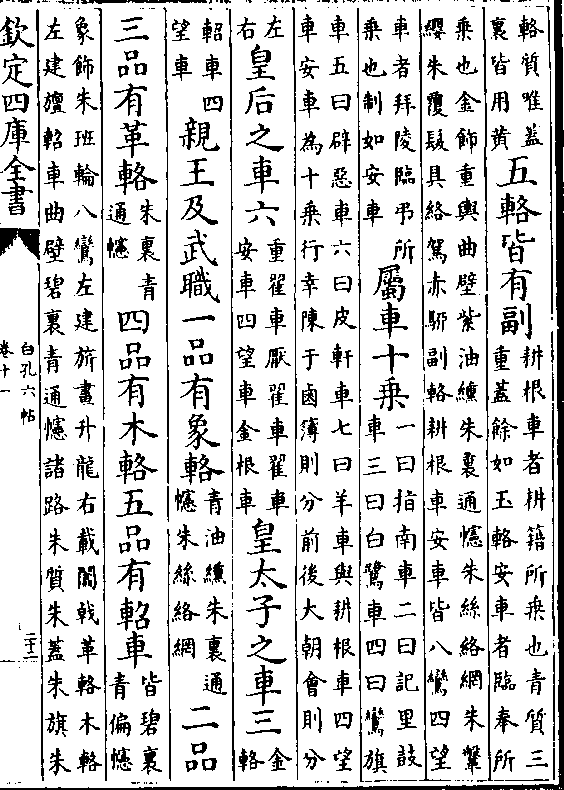 輅質唯蓋
裏皆用黄
五輅皆有副
耕根車者耕籍所乗也青質三
重蓋餘如玉輅安車者臨奉所
乗也金飾重輿曲壁紫油纁朱裏通幰朱絲絡網朱鞶
纓朱覆髮具絡駕赤駵副輅耕根車安車皆八鸞四望
車者拜陵臨弔所
乗也制如安車
屬車十乗
一曰指南車二曰記里鼓
車三曰白鷺車四曰鸞旗
車五曰辟惡車六曰皮軒車七曰羊車與耕根車四望
車安車為十乗行幸陳于鹵簿則分前後大朝會則分
左
右
皇后之車六
重翟車厭翟車翟車
安車四望車金根車
皇太子之車三
金
輅
軺車四
望車
親王及武職一品有象輅
青油纁朱裏通
幰朱絲絡網
二品
三品有革輅
朱裏青
通幰
四品有木輅五品有軺車
皆碧裏
青偏幰
象飾朱班輪八鸞左建旂畫升龍右載闟戟革輅木輅
左建旜軺車曲壁碧裏青通幰諸路朱質朱蓋朱旗朱
欽定四庫全書
白孔六帖
卷十一